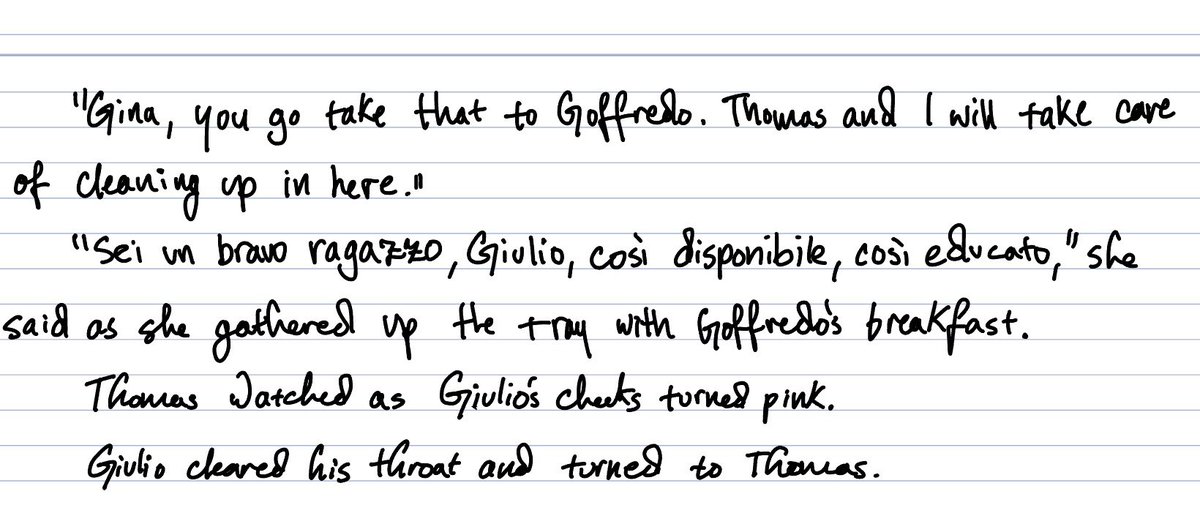 "Gina, you go take that to Goffredo. Thomas and I will take care
of cleaning up in here."
"Sei un bravo ragazzo, Giulio, così disponibile, così educato," she
said as she gathered up the tray with Goffredo's breakfast.
Thomas watched as Giulio's cheeks turned pink.
Giulio cleared his throat and turned to Thomas.